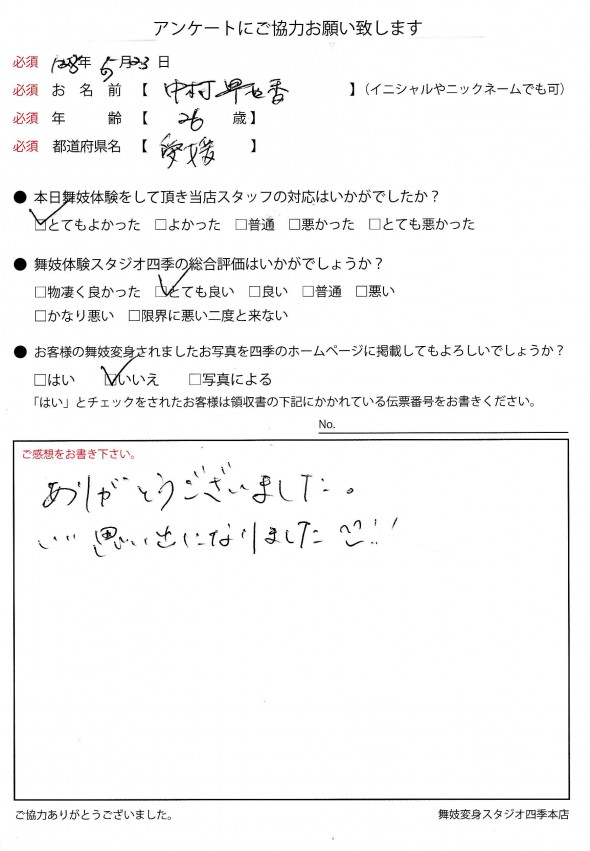 アンケートにご協力お願い致します
必須 H28年 5月23日
必須 お名前【 中村 早也香 】（イニシャルやニックネームでも可）
必須 年齢【 26 歳】
必須 都道府県名【 愛媛 】
● 本日舞妓体験をして頂き当店スタッフの対応はいかがでしたか？
☑とてもよかった □よかった □普通 □悪かった □とても悪かった
● 舞妓体験スタジオ四季の総合評価はいかがでしょうか？
□物凄く良かった ☑とても良い □良い □普通 □悪い
□かなり悪い □限界に悪い二度と来ない
● お客様の舞妓変身されましたお写真を四季のホームページに掲載してもよろしいでしょうか？
□はい ☑いいえ □写真による
「はい」とチェックをされたお客様は領収書の下記にかかれている伝票番号をお書きください。
No.
ご感想をお書き下さい。
ありがとうございました。
いい思い出になりました!!
ご協力ありがとうございました。
舞妓変身スタジオ四季本店